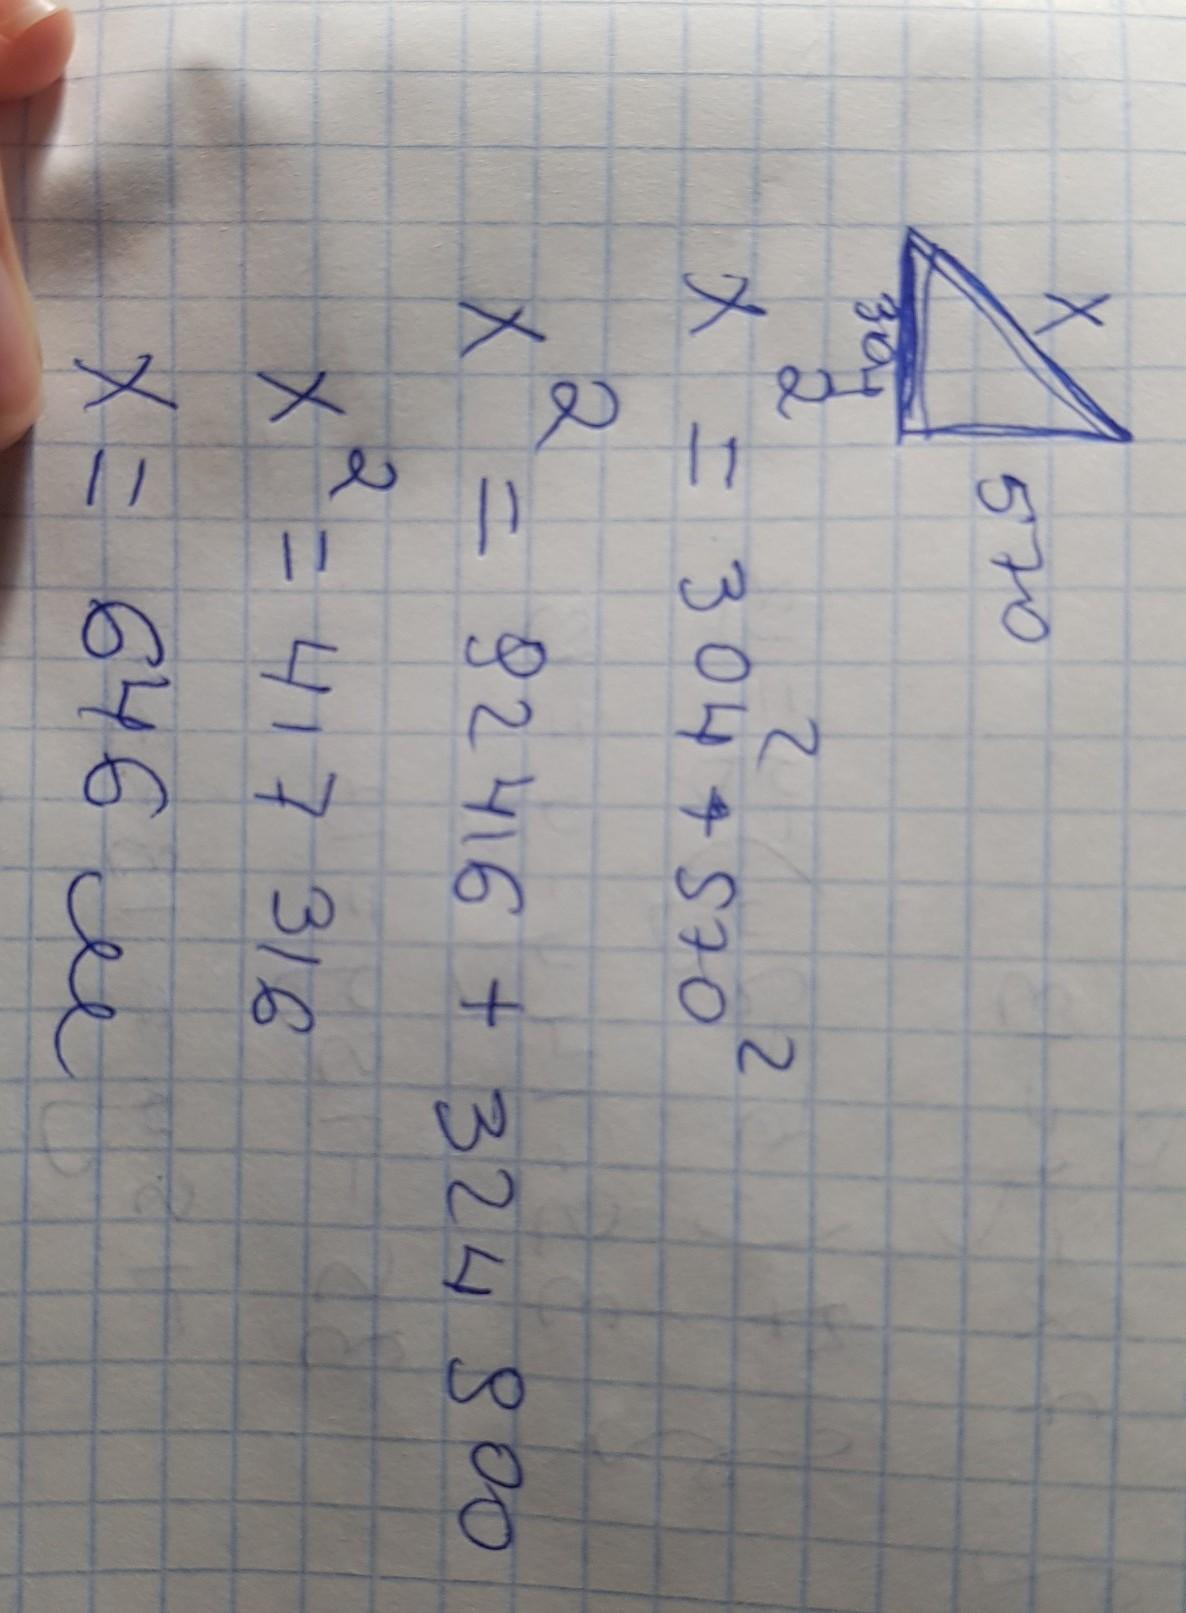 X
304
570
X² = 304² + 570²
X² = 92416 + 324 900
X² = 417 316
X = 646 м